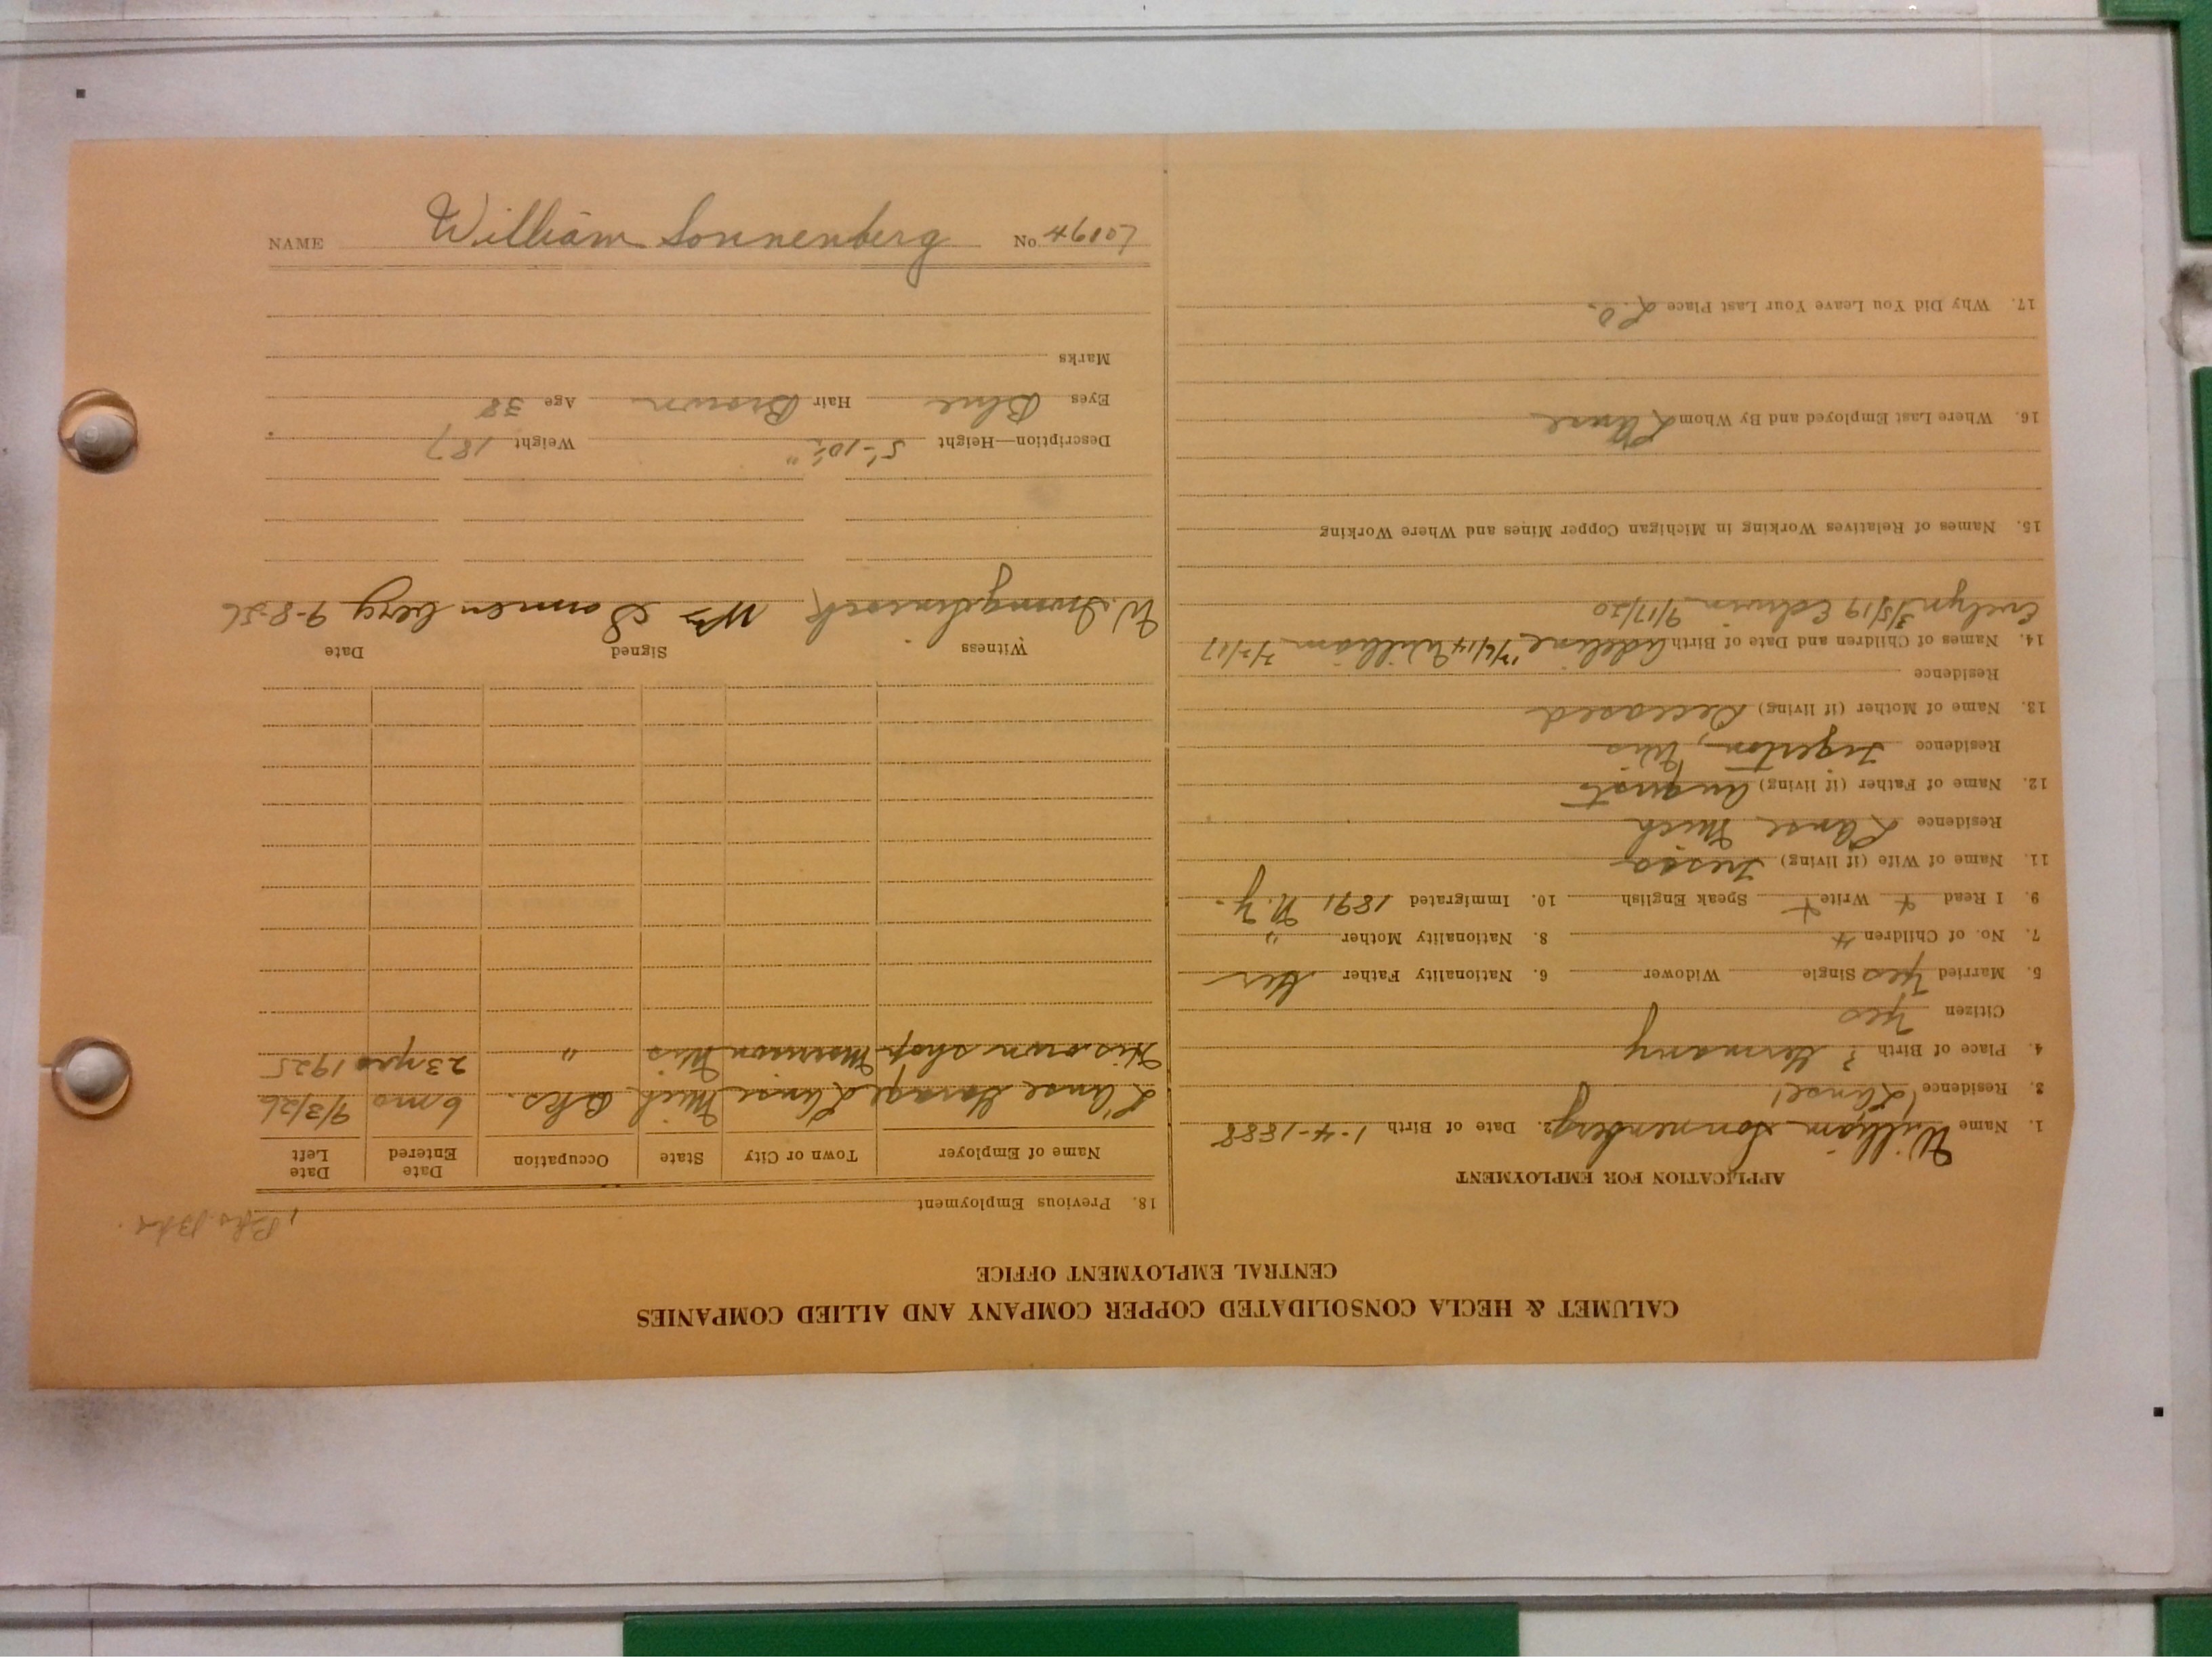 NAME William Sonnenberg No.
CALUMET & HECLA CONSOLIDATED COPPER COMPANY AND ALLIED COMPANIES
CENTRAL EMPLOYMENT OFFICE
APPLICATION FOR EMPLOYMENT
1. Name William Sonnenberg 2. Date of Birth 1-4-1888
3. Residence L'anse
4. Place of Birth ? Germany
Citizen Yes
5. Married Yes Single Widower 6. Nationality Father Ger
7. No. of Children 4 8. Nationality Mother "
9. I Read + Write + Speak English 10. Immigrated 1891 N.Y.
11. Name of Wife (if living)
Residence L'anse Mich
12. Name of Father (if living) August
Residence Tigerton, Wis
13. Name of Mother (if living) Deceased
Residence
14. Names of Children and Date of Birth Adeline William
Evelyn 3/5/19 Edwin 9/17/20
15. Names of Relatives Working in Michigan Copper Mines and Where Working
16. Where Last Employed and By Whom L'anse
17. Why Did You Leave Your Last Place L.O.
18. Previous Employment
Name of Employer Town or City State Occupation Date Entered Date Left
L'anse Garage L'anse Mich Bks. 6 mo 9/3/26
His own shop Morrison Wis " 23 yrs 1925
Witness Signed Date
W. Wm Sonnenberg 9-8-26
Description—Height 5'-10½" Weight 187
Eyes Blue Hair Brown Age 38
Marks